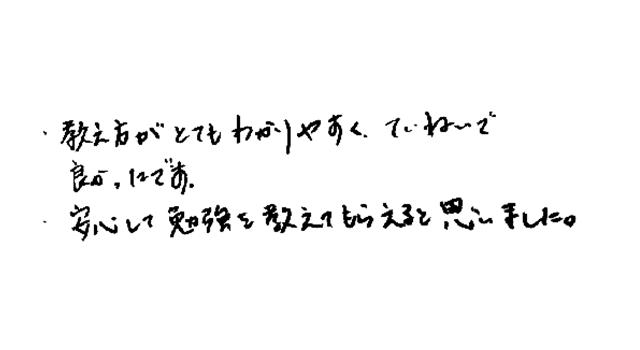 ・教え方がとてもわかりやすく、ていねいで
良かったです。
・安心して勉強を教えてもらえると思いました。